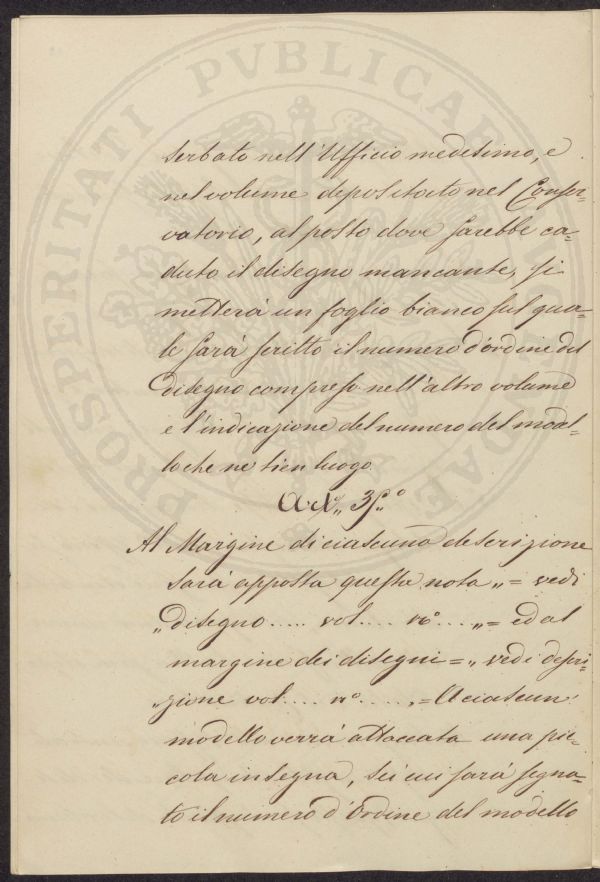 PROSPERITATI PVBLICAE AVGENDAE
serbato nell' Ufficio medesimo, e
nel volume depositato nel Conser-
vatorio, al posto dove sarebbe ca-
duto il disegno mancante, si
metterà un foglio bianco sul qua-
le sarà scritto il numero d'ordine del
disegno compreso nell' altro volume
e l'indicazione del numero del model-
lo che ne tien luogo.
Art.º 35.º
Al Margine di ciascuna descrizione
sarà apposta questa nota „= vedi
„disegno..... vol.... nº....„= ed al
margine dei disegni = „vedi descri-
„zione vol.... nº....„= A ciascun
modello verrà attaccata una pic-
cola insegna, su cui sarà segna-
to il numero d'Ordine del modello